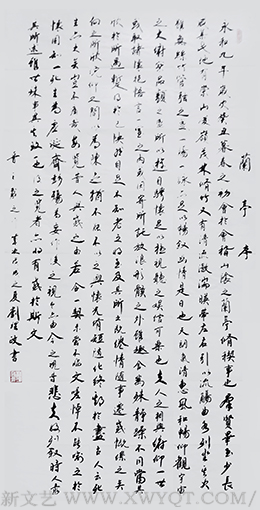 蘭亭序
永和九年歲在癸丑暮春之初會於會稽山陰之蘭亭修禊事也群賢畢至少長
咸集此地有崇山峻嶺茂林修竹又有清流激湍映帶左右引以流觴曲水列坐其次
雖無絲竹管弦之盛一觴一詠亦足以暢敘幽情是日也天朗氣清惠風和暢仰觀宇宙
之大俯察品類之盛所以遊目騁懷足以極視聽之娛信可樂也夫人之相與俯仰一世
或取諸懷抱悟言一室之內或因寄所託放浪形骸之外雖趣舍萬殊靜躁不同當其
欣於所遇暫得於己快然自足不知老之將至及其所之既倦情隨事遷感慨係之矣
向之所欣俯仰之間已為陳跡猶不能不以之興懷況修短隨化終期於盡古人云死
生亦大矣豈不痛哉每覽昔人興感之由若合一契未嘗不臨文嗟悼不能喻之於
懷固知一死生為虛誕齊彭殤為妄作後之視今亦由今之視昔悲夫故列敘時人錄
其所述雖世殊事異其致一也後之覽者亦將有感於斯文
晉王羲之 之夏劉 書
新文艺